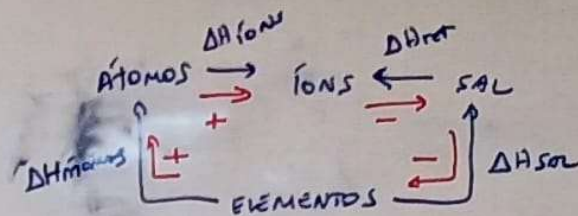 ΔHÍONS
ΔHret
ÁTOMOS → ÍONS ← SAL
+
-
+
-
ΔHSAL
ELEMENTOS